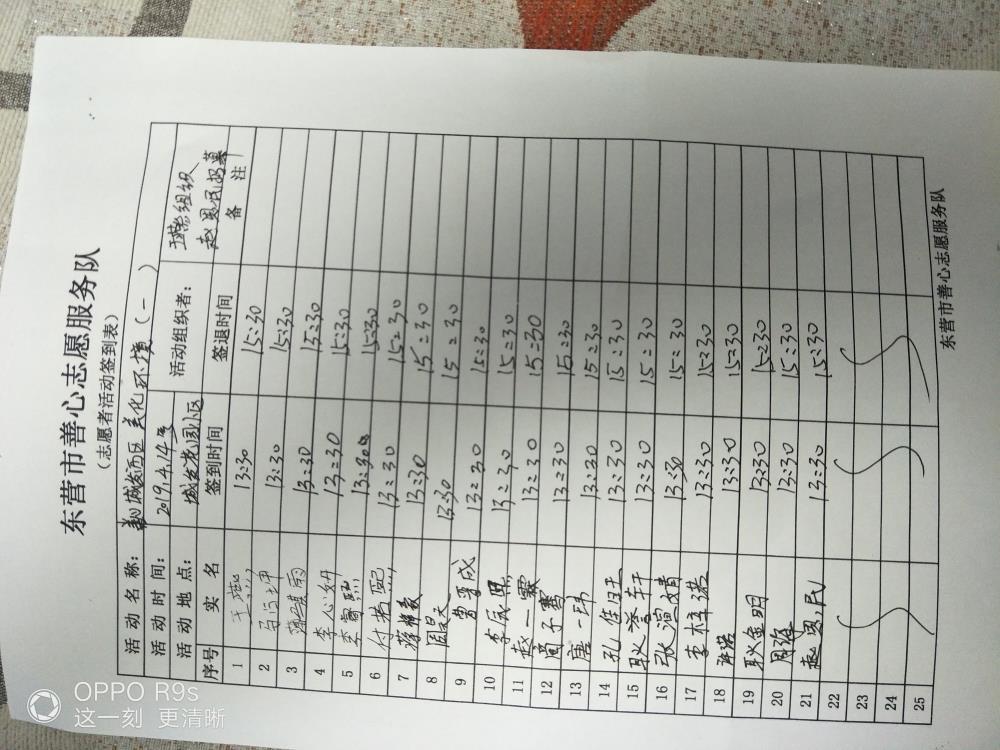 东营市善心志愿服务队
(志愿者活动签到表)
活动名称: 城发街西区 美化环境(一)
活动时间: 2019.4.14号 活动组织者:
活动地点: 城发花园小区 赵恩民招募
序号 实名 签到时间 签退时间 备注
1 13:30 15:30
2 13:30 15:30
3 13:30 15:30
4 李心妍 13:30 15:30
5 李睿熙 13:30 15:30
6 13:30 15:30
7 13:30 15:30
8 周昊天 13:30 15:30
9 13:30 15:30
10 13:30 15:30
11 赵一霖 13:30 15:30
12 周子骞 13:30 15:30
13 唐一玮 13:30 15:30
14 孔佳钰 13:30 15:30
15 耿誉轩 13:30 15:30
16 张滨婧 13:30 15:30
17 李梓诺 13:30 15:30
18 13:30 15:30
19 耿金明 13:30 15:30
20 周雅 13:30 15:30
21 赵恩民 13:30 15:30
22
23
24
25
东营市善心志愿服务队
OPPO R9s
这一刻 更清晰